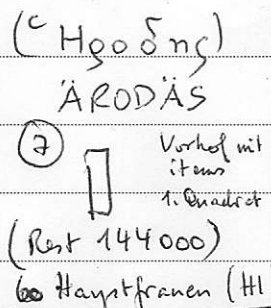 ÄRODÄS
7
Vorhof mit
items
1. Quadrat
(Rest 144 000)
60 Hauptfrauen (HI